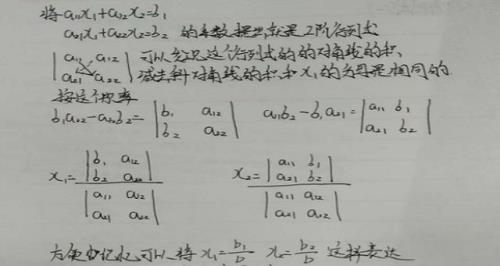 将a₁₁x₁+a₁₂x₂=b₁
a₂₁x₁+a₂₂x₂=b₂ 的系数提出,就是2阶行列式
|a₁₁ a₁₂|
|a₂₁ a₂₂| 可以发现这个行列式的的对角线的积,
减去斜对角线的积和x₁的分母是相同的
按这个概率
b₁a₂₂-a₁₂b₂=|b₁ a₁₂| a₁₁b₂-b₁a₂₁=|a₁₁ b₁|
|b₂ a₂₂| |a₂₁ b₂|
x₁=|b₁ a₁₂| x₂=|a₁₁ b₁|
|b₂ a₂₂| |a₂₁ b₂|
|a₁₁ a₁₂| |a₁₁ a₁₂|
|a₂₁ a₂₂| |a₂₁ a₂₂|
方便记忆,可以将 x₁=b₁/D x₂=b₂/D 这样表达